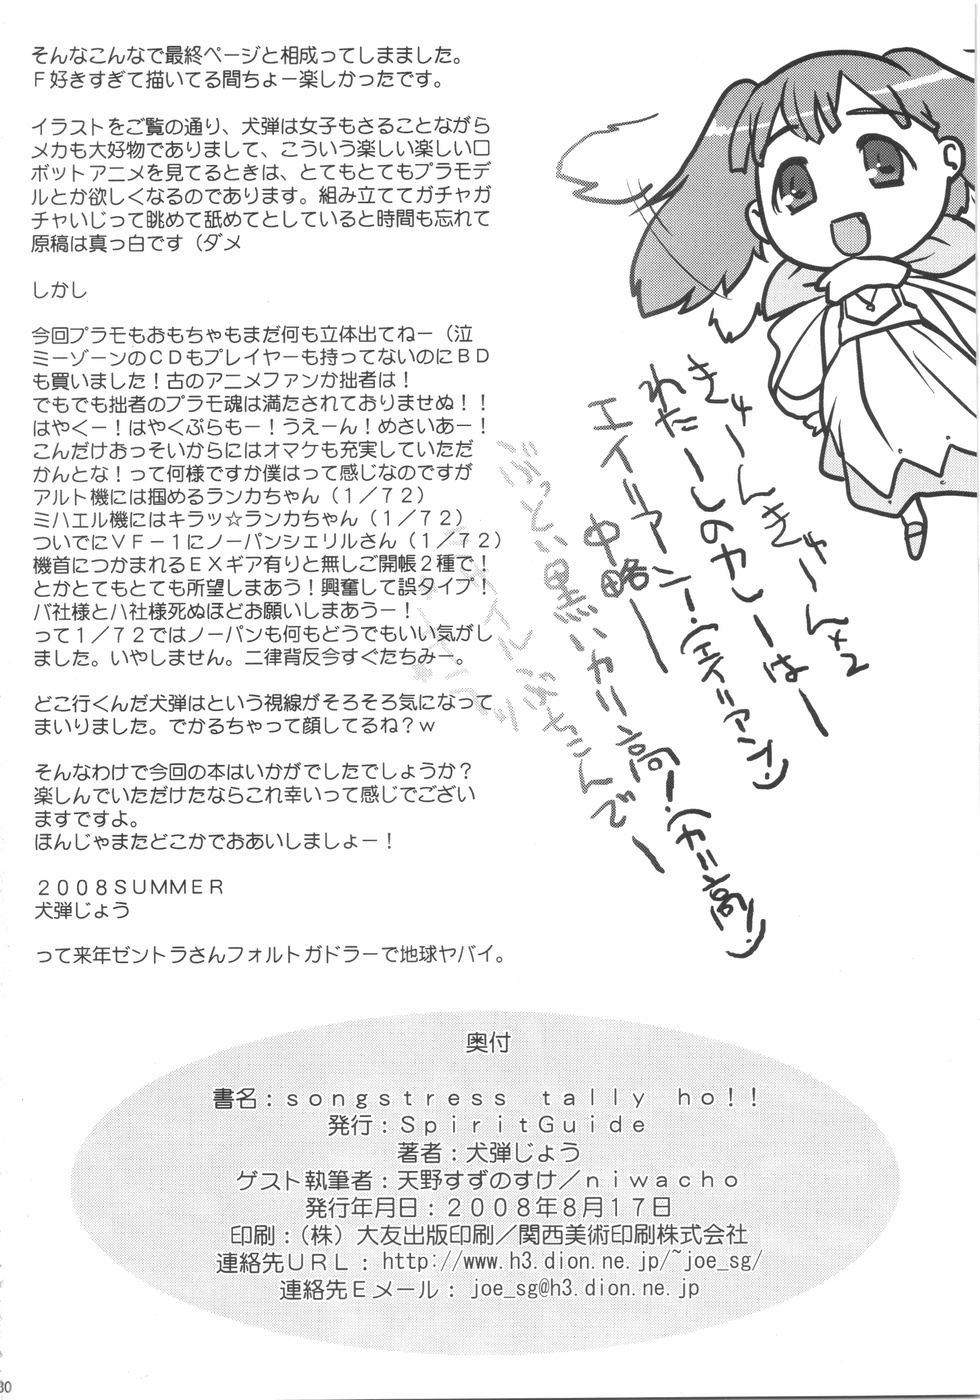 そんなこんなで最終ページと相成ってしまました。
Ｆ好きすぎて描いてる間ちょー楽しかったです。
イラストをご覧の通り、犬弾は女子もさることながら
メカも大好物でありまして、こういう楽しい楽しいロ
ボットアニメを見てるときは、とてもとてもプラモデ
ルとか欲しくなるのであります。組み立ててガチャガ
チャいじって眺めて舐めてとしていると時間も忘れて
原稿は真っ白です（ダメ
しかし
今回プラモもおもちゃもまだ何も立体出てねー（泣
ミーゾーンのＣＤもプレイヤーも持ってないのにＢＤ
も買いました！古のアニメファンか拙者は！
でもでも拙者のプラモ魂は満たされておりませぬ！！
はやくー！はやくぷらもー！うえーん！めさいあー！
こんだけおっそいからにはオマケも充実していただ
かんとな！って何様ですか僕はって感じなのですが
アルト機には掴めるランカちゃん（１／７２）
ミハエル機にはキラッ☆ランカちゃん（１／７２）
ついでにＶＦ－１にノーパンシェリルさん（１／７２）
機首につかまれるＥＸギア有りと無しご開帳２種で！
とかとてもとても所望しまあう！興奮して誤タイプ！
バ社様とハ社様死ぬほどお願いしまあうー！
って１／７２ではノーパンも何もどうでもいい気がし
ました。いやしません。二律背反今すぐたちみー。
どこ行くんだ犬弾はという視線がそろそろ気になって
まいりました。でかるちゃって顔してるね？ｗ
そんなわけで今回の本はいかがでしたでしょうか？
楽しんでいただけたならこれ幸いって感じでござい
ますですよ。
ほんじゃまたどこかでおあいしましょー！
２００８ＳＵＭＭＥＲ
犬弾じょう
って来年ゼントラさんフォルトガドラーで地球ヤバイ。
きゅーんきゅーん×2
わたーしのカレーはー
エイリアン！（エイリアン！）
中略ー
ぶっとい黒いカリ高！（カリ高！）
奥付
書名：ｓｏｎｇｓｔｒｅｓｓ　ｔａｌｌｙ　ｈｏ！！
発行：ＳｐｉｒｉｔＧｕｉｄｅ
著者：犬弾じょう
ゲスト執筆者：天野すずのすけ／ｎｉｗａｃｈｏ
発行年月日：２００８年８月１７日
印刷：（株）大友出版印刷／関西美術印刷株式会社
連絡先ＵＲＬ：http://www.h3.dion.ne.jp/~joe_sg/
連絡先Ｅメール：joe_sg@h3.dion.ne.jp
30